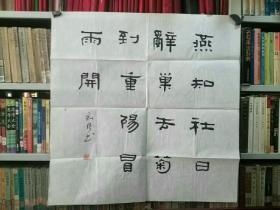 燕知社日
辭巢去菊
到重陽冒
雨開